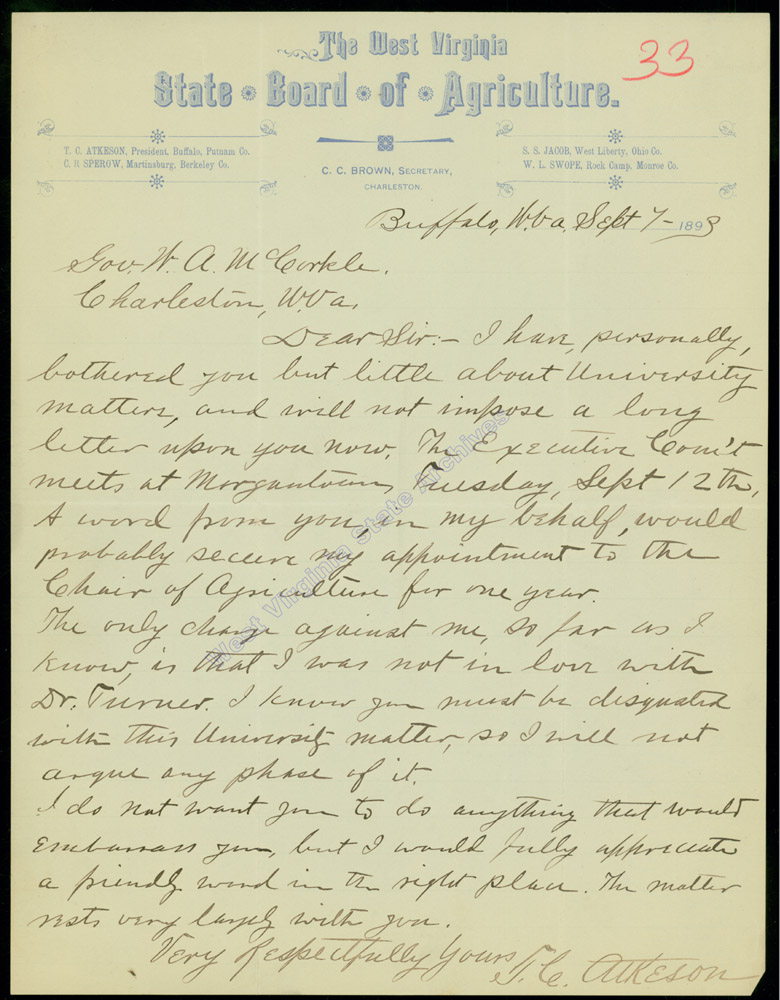 The West Virginia
33
State Board of Agriculture.
T. C. ATKESON, President, Buffalo, Putnam Co.
C. R. SPEROW, Martinsburg, Berkeley Co.
C. C. BROWN, SECRETARY,
CHARLESTON.
S. S. JACOB, West Liberty, Ohio Co.
W. L. SWOPE, Rock Camp, Monroe Co.
Buffalo, W.Va, Sept 7- 1893
Gov. W. A. McCorkle.
Charleston, W.Va.
Dear Sir:- I have, personally,
bothered you but little about University
matters, and will not impose a long
letter upon you now. The Executive Com't
meets at Morgantown, Tuesday, Sept 12th,
A word from you, in my behalf, would
probably secure my appointment to the
Chair of Agriculture for one year.
The only charge against me, so far as I
know, is that I was not in love with
Dr. Turner. I know you must be disgusted
with this University matter, so I will not
argue any phase of it.
I do not want you to do anything that would
embarrass you, but I would fully appreciate
a friendly word in the right place. The matter
rests very largely with you.
Very Respectfully Yours,
T. C. Atkeson
West Virginia State Archives